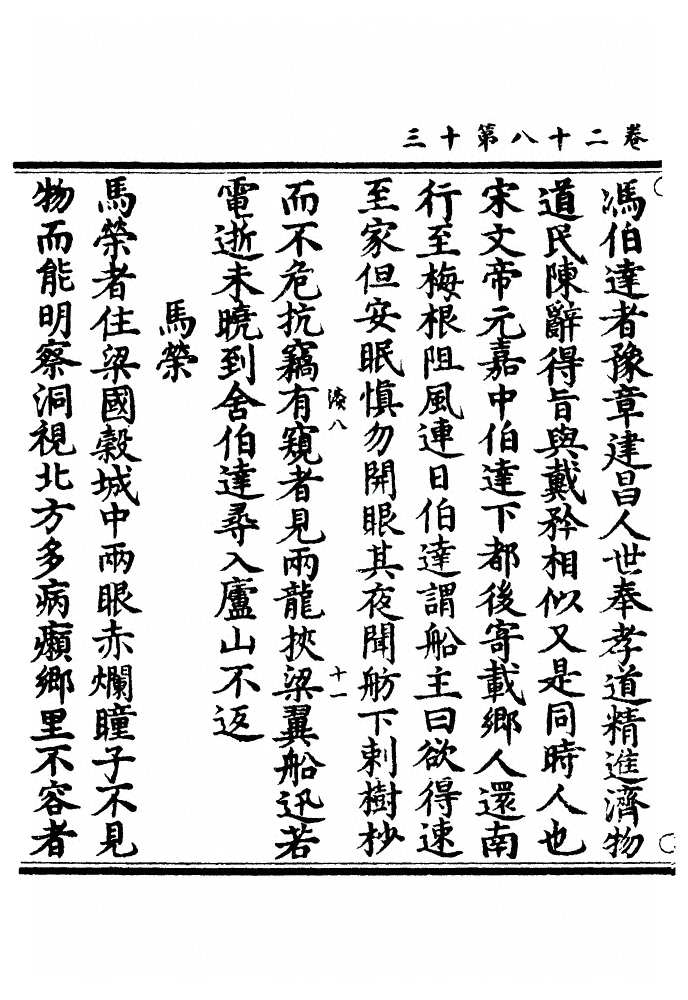 卷二十八第十三
馮伯達者豫章建昌人世奉孝道精進濟物
道民陳辭得旨與戴矜相似又是同時人也
宋文帝元嘉中伯達下都後寄載鄉人還南
行至梅根阻風連日伯達謂船主曰欲得速
至家但安眠慎勿開眼其夜聞舫下剌樹杪
而不危抗竊有窺者見兩龍挾梁翼船迅若
湊八
十一
電逝未曉到舍伯達尋入廬山不返
馬榮
馬榮者住梁國穀城中兩眼赤爛瞳子不見
物而能明察洞視北方多病癩鄉里不容者